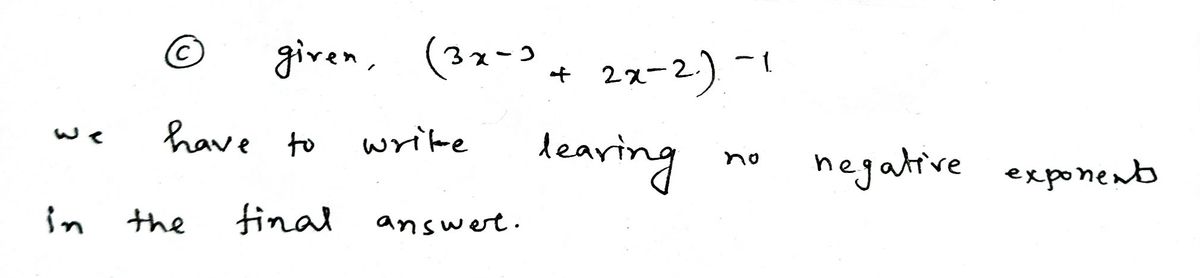 © given, (3x-3 + 2x-2.) -1
we have to write leaving no negative exponents
in the final answer.